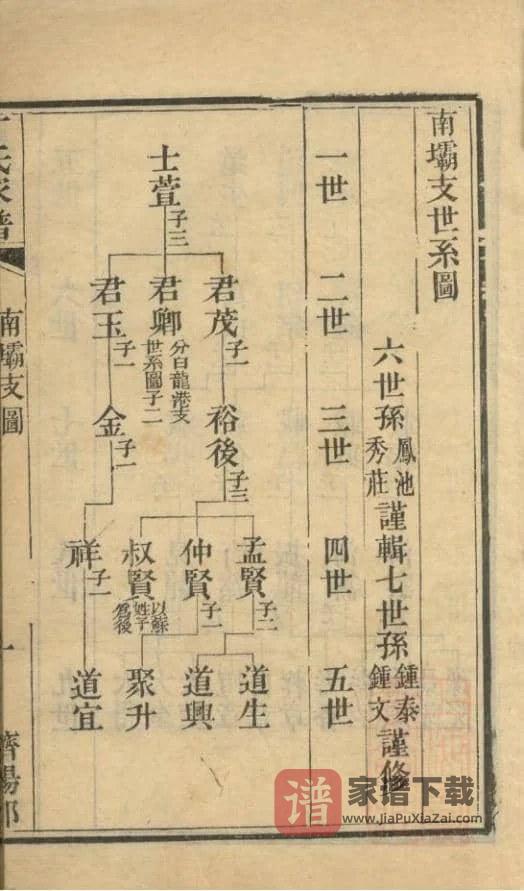 南壩支世系圖
六世孫鳳池秀莊謹輯七世孫鍾泰鍾文謹修
一世
二世
三世
四世
五世
士萱 子三
君茂 子一
君卿 分白龍港支世系圖子二
君玉 子一
裕後 子三
金 子一
孟賢 子二
仲賢 子一
叔賢 以蘇姓子爲後
祥 子一
道生
道興
聚升
道宜
氏家譜
南壩支圖
一
濟陽郡
譜
家谱下载
www.JiaPuXiaZai.com